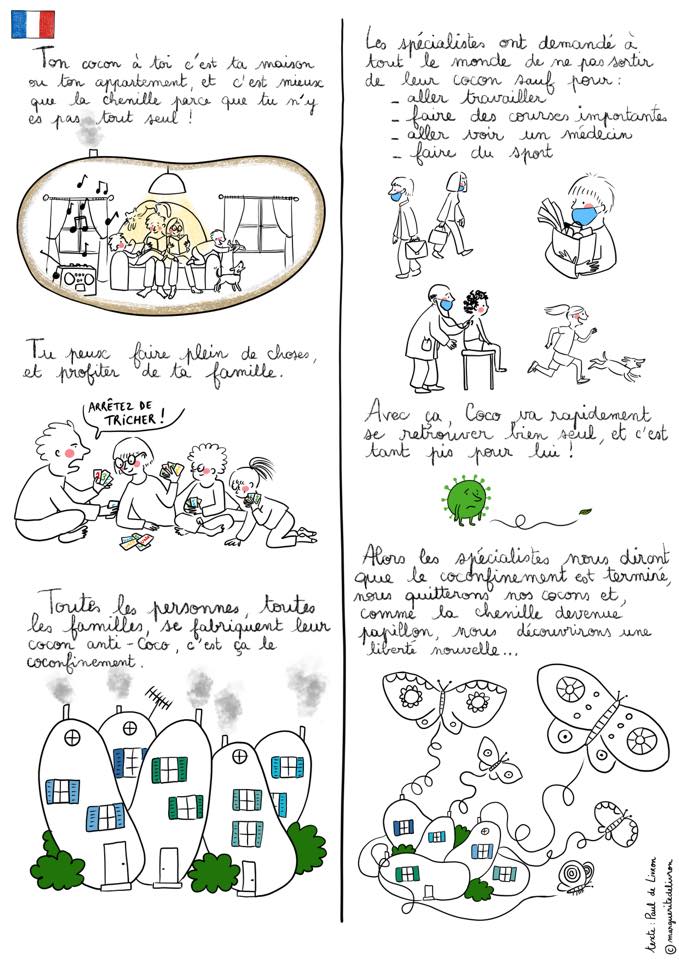 Ton cocon à toi c'est ta maison
ou ton appartement, et c'est mieux
que la chenille parce que tu n'y
es pas tout seul !
Tu peux faire plein de choses,
et profiter de ta famille.
ARRÊTEZ DE
TRICHER !
Toutes les personnes, toutes
les familles, se fabriquent leur
cocon anti-Coco, c'est ça le
coconfinement.
Les spécialistes ont demandé à
tout le monde de ne pas sortir
de leur cocon sauf pour :
- aller travailler
- faire des courses importantes
- aller voir un médecin
- faire du sport
Avec ça, Coco va rapidement
se retrouver bien seul, et c'est
tant pis pour lui !
Alors les spécialistes nous diront
que le coconfinement est terminé,
nous quitterons nos cocons et,
comme la chenille devenue
papillon, nous découvrirons une
liberté nouvelle...
texte : Paul de Livron
© margueritedelivron